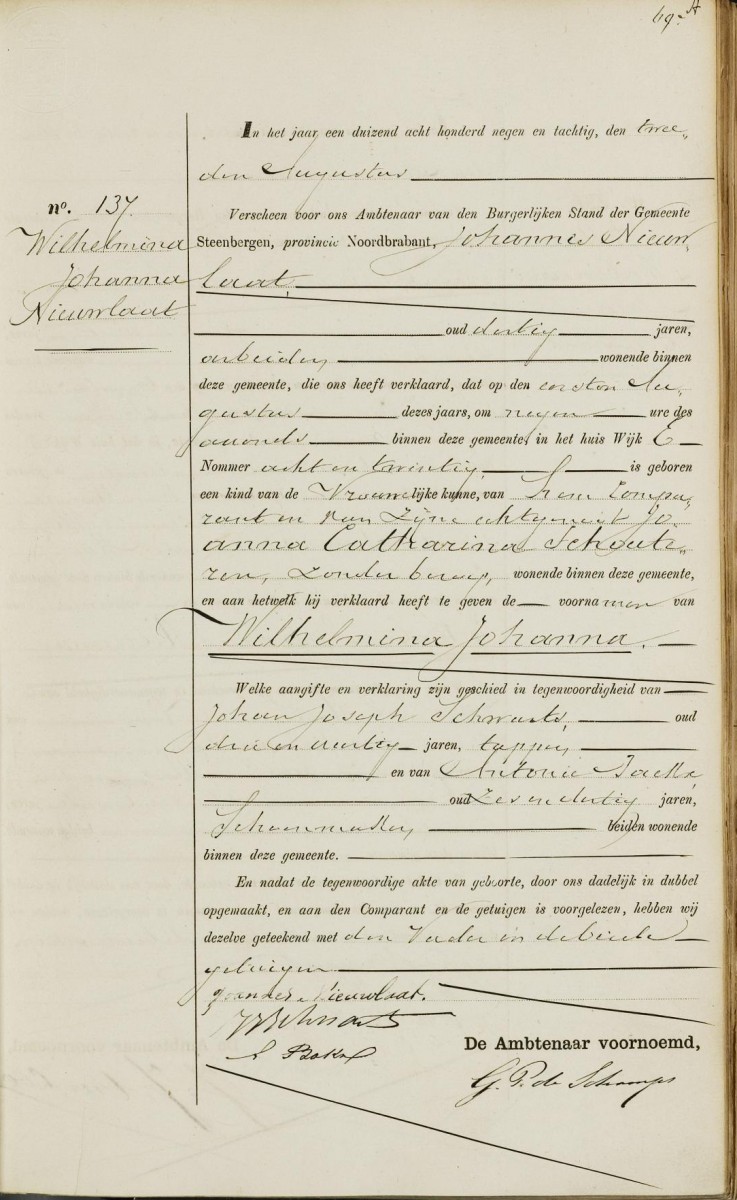 69. A
In het jaar een duizend acht honderd negen en tachtig, den twee-
den Augustus
no. 137.
Wilhelmina
Johanna
Nieuwlaat
Verscheen voor ons Ambtenaar van den Burgerlijken Stand der Gemeente
Steenbergen, provincie Noordbrabant, Johannes Nieuw-
laat,
oud dertig jaren,
arbeider, wonende binnen
deze gemeente, die ons heeft verklaard, dat op den eersten Au-
gustus dezes jaars, om negen ure des
avonds binnen deze gemeente, in het huis Wijk E
Nommer acht en twintig is geboren
een kind van de Vrouwelijke kunne, van hem Compa-
rant en van zijne echtgenoot Jo-
anna Catharina Schoute-
ren, zonder beroep, wonende binnen deze gemeente,
en aan hetwelk hij verklaard heeft te geven de voornamen van
Wilhelmina Johanna.
Welke aangifte en verklaring zijn geschied in tegenwoordigheid van
Johan Joseph Schwarts, oud
drie en veertig jaren, tapper,
en van Antonie
oud zes en dertig jaren,
Schoenmaker, beiden wonende
binnen deze gemeente.
En nadat de tegenwoordige akte van geboorte, door ons dadelijk in dubbel
opgemaakt, en aan den Comparant en de getuigen is voorgelezen, hebben wij
dezelve geteekend met den Vader en de beide
getuigen
Nieuwlaat.
De Ambtenaar voornoemd,
G. P. de Schamps